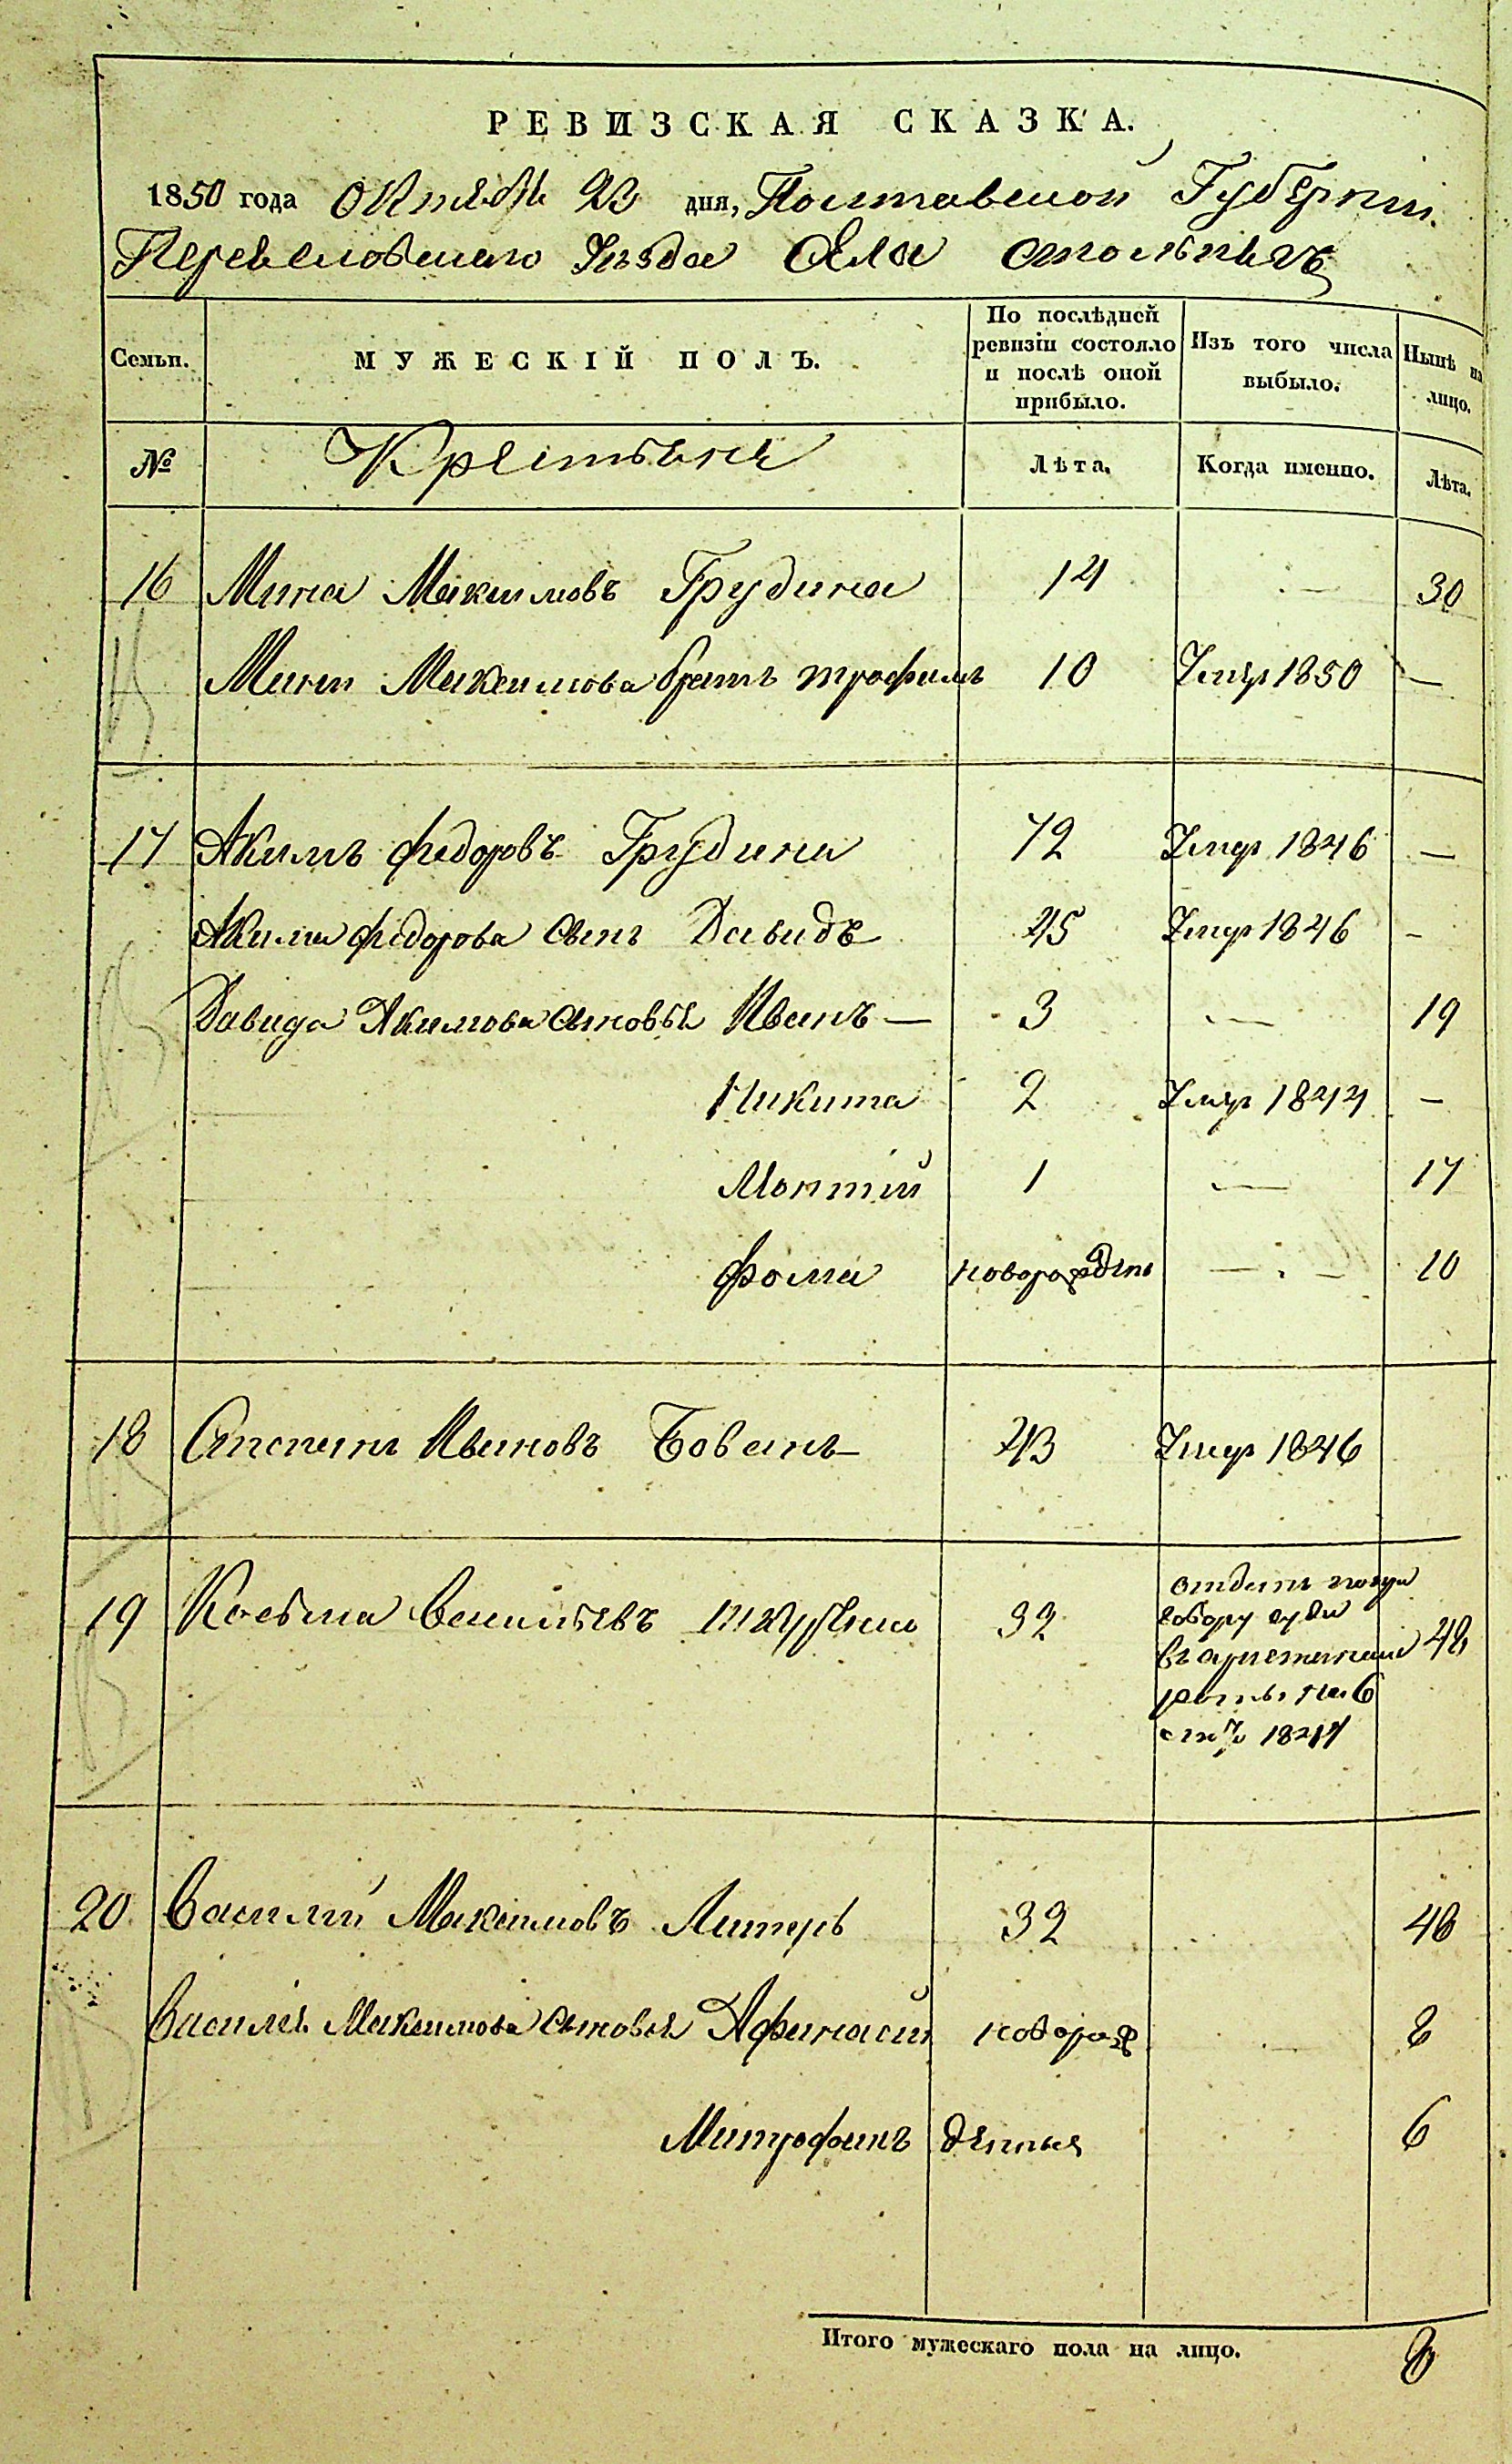 РЕВИЗСКАЯ СКАЗКА.
1850 года Октября 23 дня, Полтавской Губерніи.
Переяславскаго Уѣзда Села Стольпягъ
Семьи.
МУЖЕСКІЙ ПОЛЪ.
По послѣдней
ревизіи состояло
и послѣ оной
прибыло.
Изъ того числа
выбыло.
Нынѣ на
лицо.
№ Крестьяне Лѣта. Когда именно. Лѣта.
16 Мина Максимовъ Грудина 14 — 30
Мины Максимова братъ трофимъ 10 Умер 1850 —
17 Акимъ федоровъ Грудина 72 Умер 1846 —
Акима федорова сынъ Давидъ 45 Умер 1846 -
Давида Акимова сыновья Иванъ — 3 — 19
Никита 2 Умер 1844 -
Монтій 1 — 17
фома новорожденъ — . — 10
18 Ивановъ Бованъ 43 Умер 1846
19 Косьма васильевъ 32 48
отданъ
въ арестанскіе
роты на 6
1847
20 василій Максимовъ Литеръ 32 48
василія Максимова сыновья Афанасій новорож — 8
Митрофанъ денные 6
Итого мужескаго пола на лицо. 8